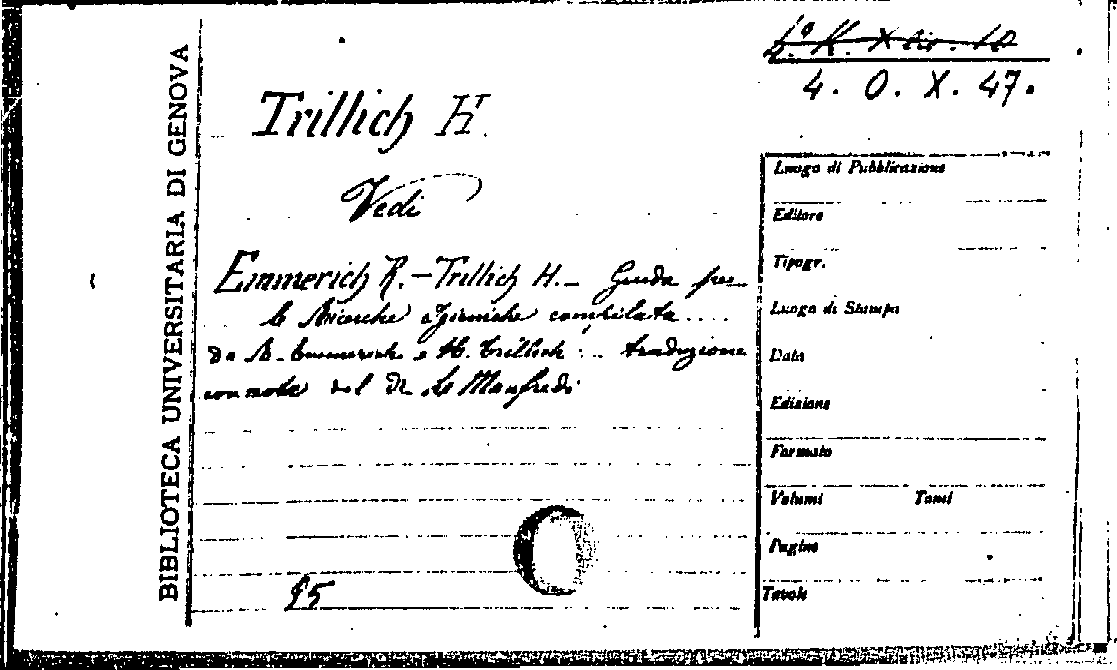 BIBLIOTECA UNIVERSITARIA DI GENOVA
4. O. X. 47.
Trillich H.
Vedi
Emmerich R. - Trillich H. - Guida per
le Ricerche igieniche compilata ....
da R. Emmerich e H. Trillich ... traduzione
con note del Dr L. Manfredi
95
Luogo di Pubblicazione
Editore
Tipogr.
Luogo di Stampa
Data
Edizione
Formato
Volumi Tomi
Pagine
Tavole